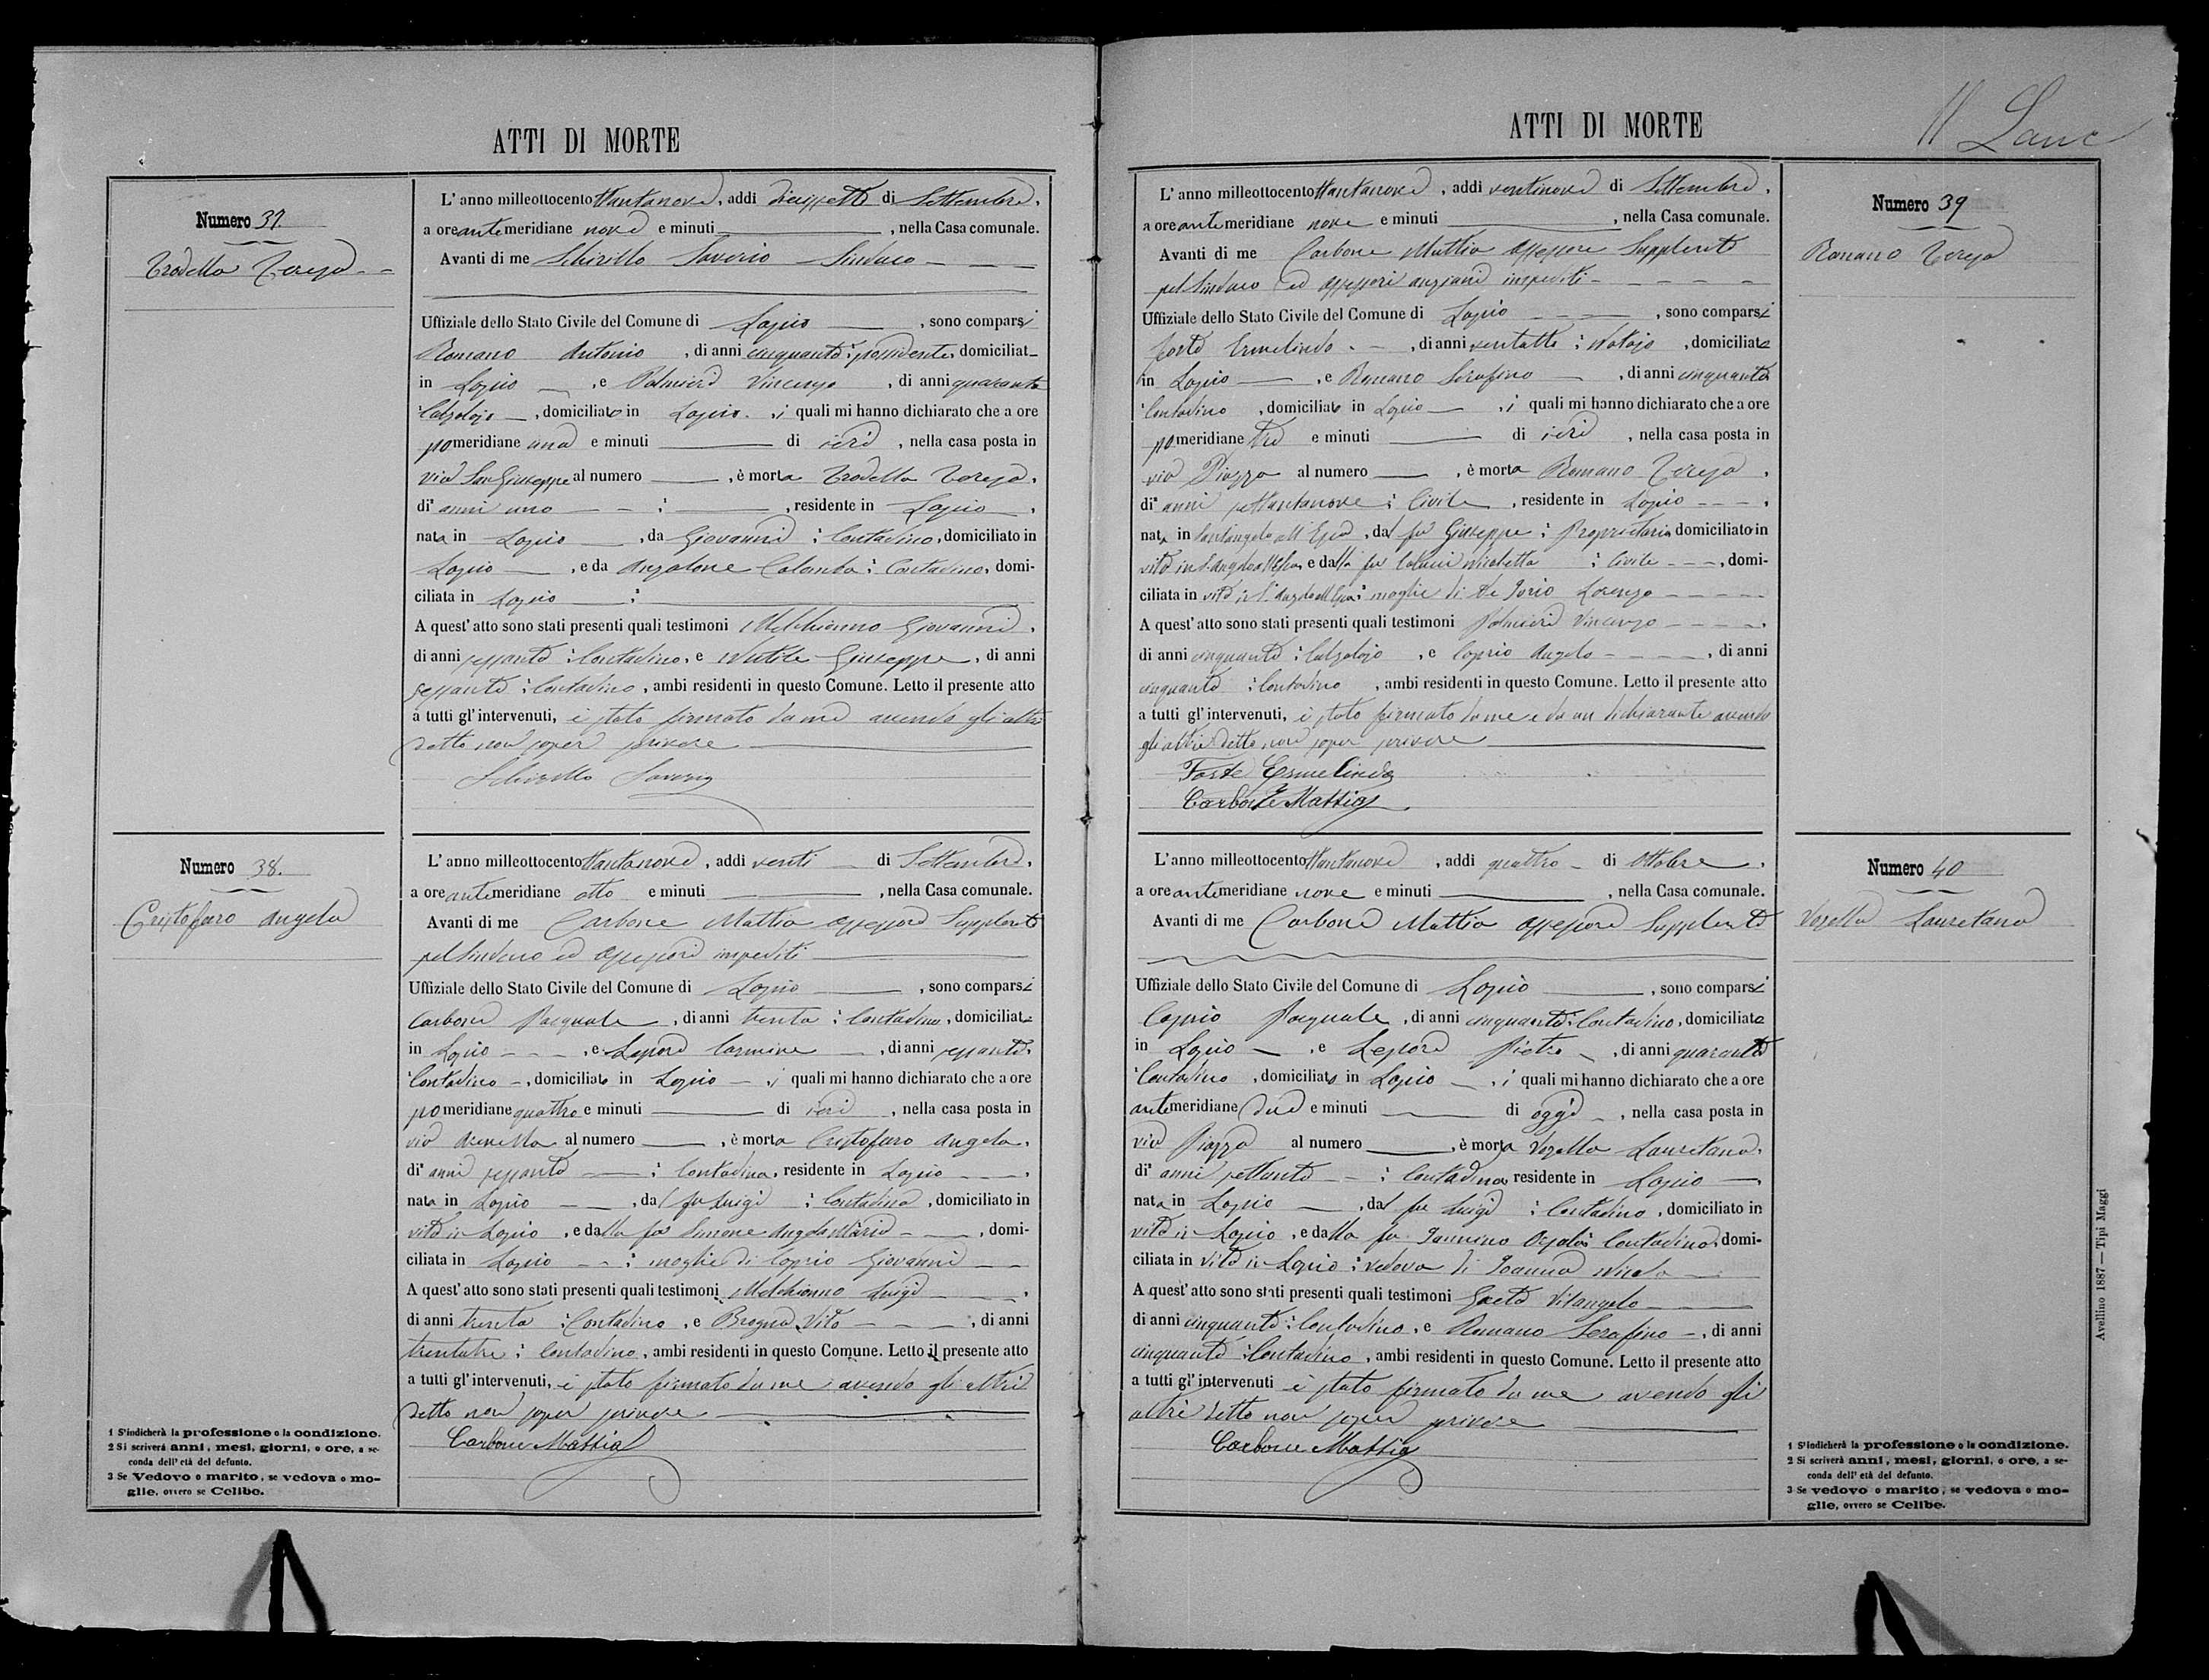 ATTI DI MORTE
Numero 37.
Trodella Teresa
L' anno milleottocentottantanove, addì diciassette di Settembre,
a ore antemeridiane nove e minuti , nella Casa comunale.
Avanti di me Schirillo Saverio Sindaco
Uffiziale dello Stato Civile del Comune di Lapio , sono comparsi
Romano Antonio , di anni cinquanta; possidente, domiciliat
in Lapio , e Palmieri Vincenzo , di anni quaranta
Calzolajo , domiciliato in Lapio. , i quali mi hanno dichiarato che a ore
pomeridiane una e minuti di ieri , nella casa posta in
via San Giuseppe al numero , è morta Trodella Teresa,
di anni uno ; , residente in Lapio ,
nata in Lapio , da Giovanni ; Contadino, domiciliato in
Lapio , e da Anzalone Colomba; Contadina, domi-
ciliata in Lapio ;
A quest' atto sono stati presenti quali testimoni Melchionno Giovanni,
di anni sessanta ; Contadino, e Nutile Giuseppe, di anni
sessanta ; Contadino, ambi residenti in questo Comune. Letto il presente atto
a tutti gl' intervenuti, è stato firmato da me avendo gli altri
detto non saper scrivere
Schirillo Saverio
Numero 38.
Cristofaro Angela
L' anno milleottocentottantanove, addì venti di Settembre,
a ore antemeridiane otto e minuti , nella Casa comunale.
Avanti di me Carbone Mattia assessore Supplente
pel Sindaco ed assessori impediti
Uffiziale dello Stato Civile del Comune di Lapio , sono comparsi
Carbone Pasquale , di anni trenta ; Contadino, domiciliato
in Lapio , e Lepore Carmine , di anni sessanta,
Contadino , domiciliato in Lapio , i quali mi hanno dichiarato che a ore
pomeridiane quattro e minuti di ieri , nella casa posta in
via al numero , è morta Cristofaro Angela,
di anni sessanta ; Contadina, residente in Lapio ,
nata in Lapio , dal fu Luigi ; Contadino , domiciliato in
vita in Lapio , e dalla fu Simone Angela Maria , domi-
ciliata in Lapio ; moglie di Caprio Giovanni
A quest' atto sono stati presenti quali testimoni Melchionno Luigi ,
di anni trenta ; Contadino , e Brogna Vito , di anni
trentatre ; Contadino, ambi residenti in questo Comune. Letto il presente atto
a tutti gl' intervenuti, è stato firmato da me avendo gli altri
detto non saper scrivere
Carbone Mattia
1 S'indicherà la professione o la condizione.
2 Si scriverà anni, mesi, giorni, o ore, a se-
conda dell' età del defunto.
3 Se Vedovo o marito, se vedova o mo-
glie, ovvero se Celibe.
ATTI DI MORTE
11
Numero 39
Romano Teresa
L' anno milleottocentottantanove , addì ventinove di Settembre,
a ore antemeridiane nove e minuti , nella Casa comunale.
Avanti di me Carbone Mattia assessore Supplente
pel Sindaco ed assessori anziani impediti
Uffiziale dello Stato Civile del Comune di Lapio , sono comparsi
Forte Ermelindo , di anni ventotto ; Notajo , domiciliato
in Lapio , e Romano Serafino , di anni cinquanta
Contadino , domiciliato in Lapio , i quali mi hanno dichiarato che a ore
pomeridiane tre e minuti di ieri , nella casa posta in
via Piazza al numero , è morta Romano Teresa ,
di anni settantanove ; Civile , residente in Lapio ,
nata in Santangelo all'Esca , dal fu Giuseppe ; Proprietario domiciliato in
vita in S. Angelo all'Esca, e dalla fu Nicoletta ; Civile , domi-
ciliata in vita in S. Angelo all'Esca; moglie di De Iorio Lorenzo
A quest' atto sono stati presenti quali testimoni Palmieri Vincenzo ,
di anni cinquanta ; Calzolajo , e Caprio Angelo , di anni
cinquanta ; Contadino , ambi residenti in questo Comune. Letto il presente atto
a tutti gl' intervenuti, è stato firmato da me e da un dichiarante avendo
gli altri detto non saper scrivere
Forte Ermelindo
Carbone Mattia
Numero 40
Vozella Lauretana
L' anno milleottocentottantanove , addì quattro di Ottobre ,
a ore antemeridiane nove e minuti , nella Casa comunale.
Avanti di me Carbone Mattia assessore Supplente
Uffiziale dello Stato Civile del Comune di Lapio , sono comparsi
Caprio Pasquale , di anni cinquanta; Contadino, domiciliato
in Lapio , e Lepore Pietro , di anni quaranta
Contadino , domiciliato in Lapio , i quali mi hanno dichiarato che a ore
antemeridiane due e minuti di oggi , nella casa posta in
via Piazza al numero , è morta Vozella Lauretana,
di anni settanta ; Contadina residente in Lapio ,
nata in Lapio , dal fu Luigi ; Contadino , domiciliato in
vita in Lapio , e dalla fu Contadina, domi-
ciliata in vita in Lapio ; vedova di Ioanna Nicola
A quest' atto sono stati presenti quali testimoni Gaeta Vitangelo
di anni cinquanta ; Contadino , e Romano Serafino , di anni
cinquanta ; Contadino , ambi residenti in questo Comune. Letto il presente atto
a tutti gl' intervenuti è stato firmato da me avendo gli
altri detto non saper scrivere
Carbone Mattia
1 S'indicherà la professione o la condizione.
2 Si scriverà anni, mesi, giorni, o ore, a se-
conda dell' età del defunto.
3 Se vedovo o marito, se vedova o mo-
glie, ovvero se Celibe.
Avellino 1887 — Tipi Maggi